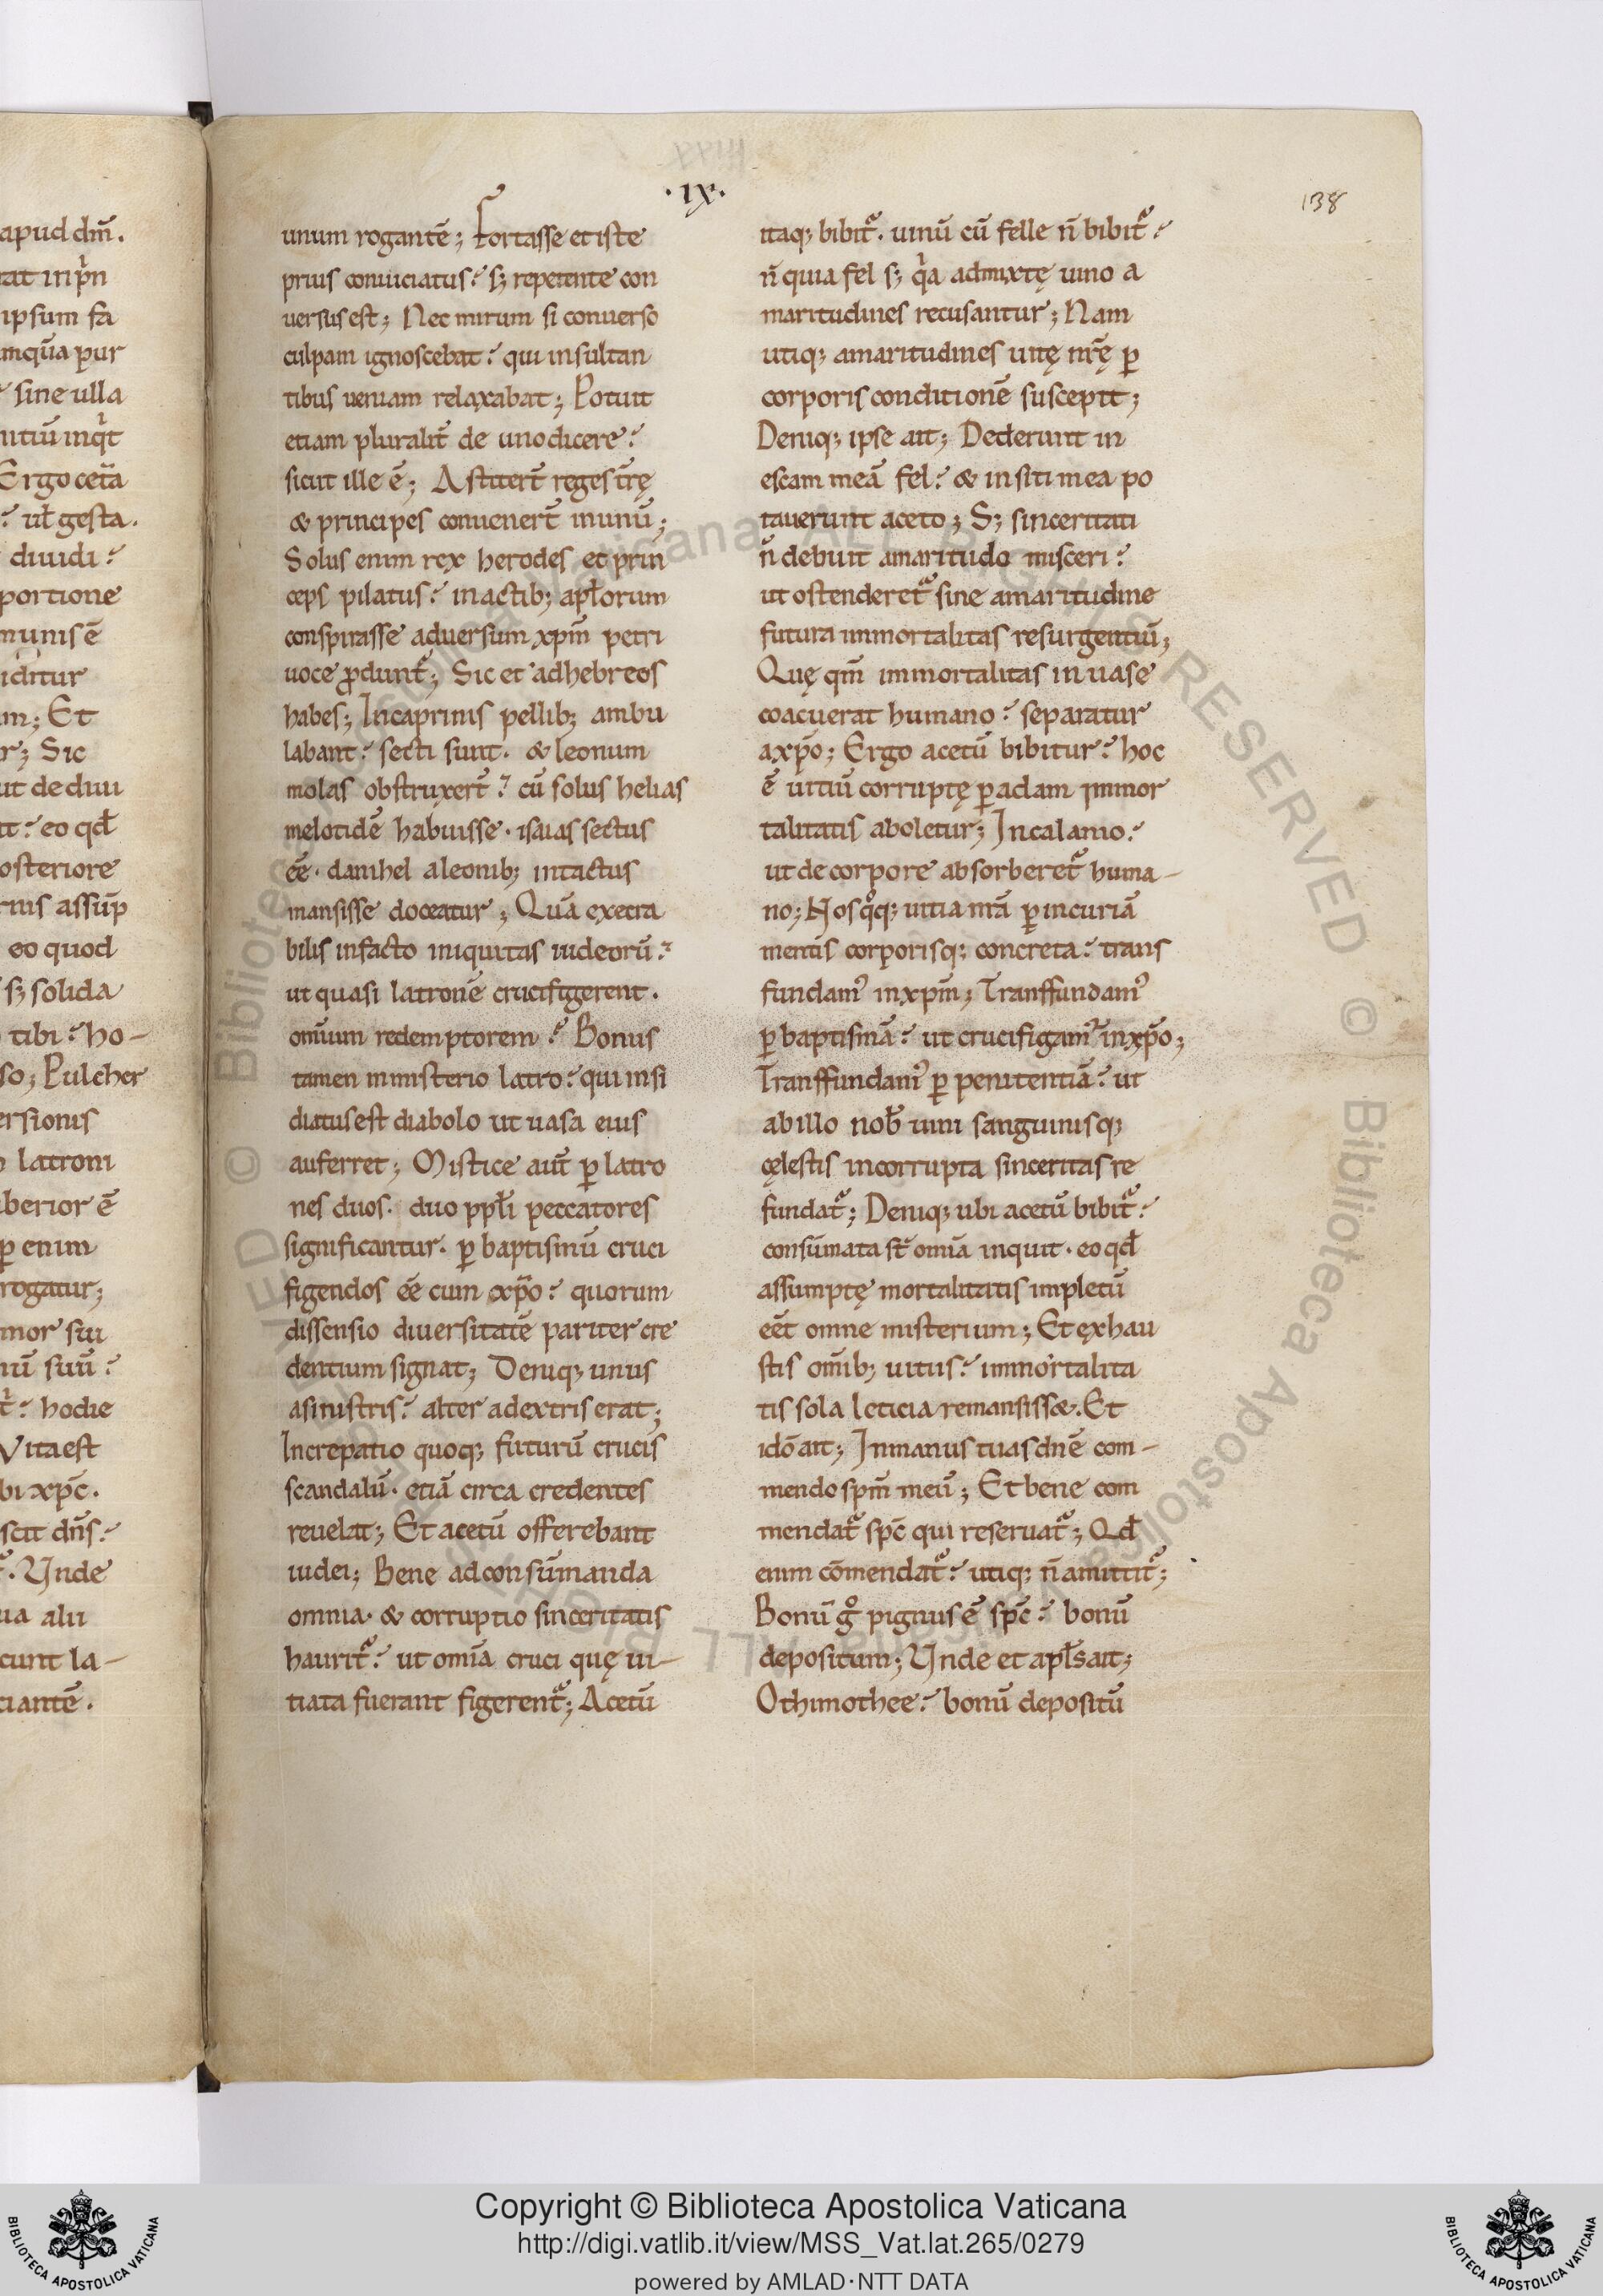 apud dm̄.
rat in pͥn
ipsum fa
mquā pur
sine ulla
nitiū inqͥt
Ergo cet̄a
ut̄ gesta.
diuidi?
portione
munis ē
iditur
m; Et
r; Sic
ut de diui
t? eo qd̄
osteriore
rnis assūp
eo quod
s; solida
tibi? ho-
so; Pulcher
ersionis
latroni
berior ē
ꝑ enim
rogatur;
mor sui
nū suū?
hodie
Vita est
bi xp̄c.
scit dn̄s?
Vnde
ua alii
cunt la-
ciantē.
.IX.
138
unum rogantē; Fortasse et iste
prius conuiciatus? s; repetente con
uersus est; Nec mirum si conuerso
culpam ignoscebat? qui insultan
tibus ueniam relaxabat; Potuit
etiam pluralit̄ de uno dicere?
sicut ille ē; Astiter̄t reges t̄rę
& principes conuener̄t in unū;
Solus enim rex herodes et prin
ceps pilatus? in actib; apl̄orum
conspirasse aduersum xpm̄ petri
uoce ꝓdunt᷑; Sic et ad hebreos
habes; In caprinis pellib; ambu
labant? secti sunt. & leonum
molas obstruxer̄t? cū solus helias
melotidē habuisse. isaias sectus
eē. danihel a leonib; intactus
mansisse doceatur; Quā exetra
bilis in facto iniquitas iudeorū?
ut quasi latronē crucifigerent.
om̄ium redemptorem? Bonus
tamen ministerio latro? qui insi
diatus est diabolo ut uasa eius
auferret; Mistice aut̄ ꝑ latro
nes duos. duo ppl̄i peccatores
significantur. ꝑ baptismū cruci
figendos eē cum xp̄o? quorum
dissensio diuersitatē pariter cre
dentium signat; Deniq; unus
a sinistris? alter a dextris erat;
Increpatio quoq; futurū crucis
scandalū. etiā circa credentes
reuelat; Et acetū offerebant
iudei; Bene ad consūmanda
omnia. & corruptio sinceritatis
haurit᷑? ut om̄ia cruci quę ui-
tiata fuerant figerent᷑; Acetū
itaq; bibit᷑. uinū cū felle n̄ bibit᷑?
n̄ quia fel s; qͥa admixtę uino a
maritudines recusantur; Nam
utiq; amaritudines uitę nr̄ę ꝑ
corporis conditionē suscepit;
Deniq; ipse ait; Dederunt in
escam meā fel? & in siti mea po
tauerunt aceto; S; sinceritati
n̄ debuit amaritudo misceri?
ut ostenderet᷑ sine amaritudine
futura immortalitas resurgentiū;
Quę qm̄ immortalitas in uase
coacuerat humano? separatur
a xp̄o; Ergo acetū bibitur? hoc
ē uitiū corruptę ꝑ adam immor
talitatis aboletur; In calamo?
ut de corpore absorberet᷑ huma-
no; Nos qͦq; uitia nr̄a ꝑ incuriā
mentis corporisq; concreta? trans
fundamꝰ in xpm̄; Transfundamꝰ
ꝑ baptismā? ut crucifigam᷑ in xp̄o;
Transfundamꝰ ꝑ penitentiā? ut
ab illo nob̄ uini sanguinisq;
cęlestis incorrupta sinceritas re
fundat᷑; Deniq; ubi acetū bibit᷑?
consūmata st̄ om̄ia inquit. eo qd̄
assumptę mortalitatis impletū
eēt omne misterium; Et exhau
stis om̄ib; uitiis? immortalita
tis sola leticia remansiss&. Et
idō ait; In manus tuas dn̄e com-
mendo spm̄ meū; Et bene com
mendat᷑ spc̄ qui reseruat᷑; Qd̄
enim cōmendat᷑? utiq; n̄ amittit᷑;
Bonū gͦ pignus ē spc̄? bonū
depositum; Vnde et apl̄s ait;
O thimothee? bonū depositū
Copyright © Biblioteca Apostolica Vaticana
http://digi.vatlib.it/view/MSS_Vat.lat.265/0279
powered by AMLAD·NTT DATA
BIBLIOTECA APOSTOLICA VATICANA
BIBLIOTECA APOSTOLICA VATICANA